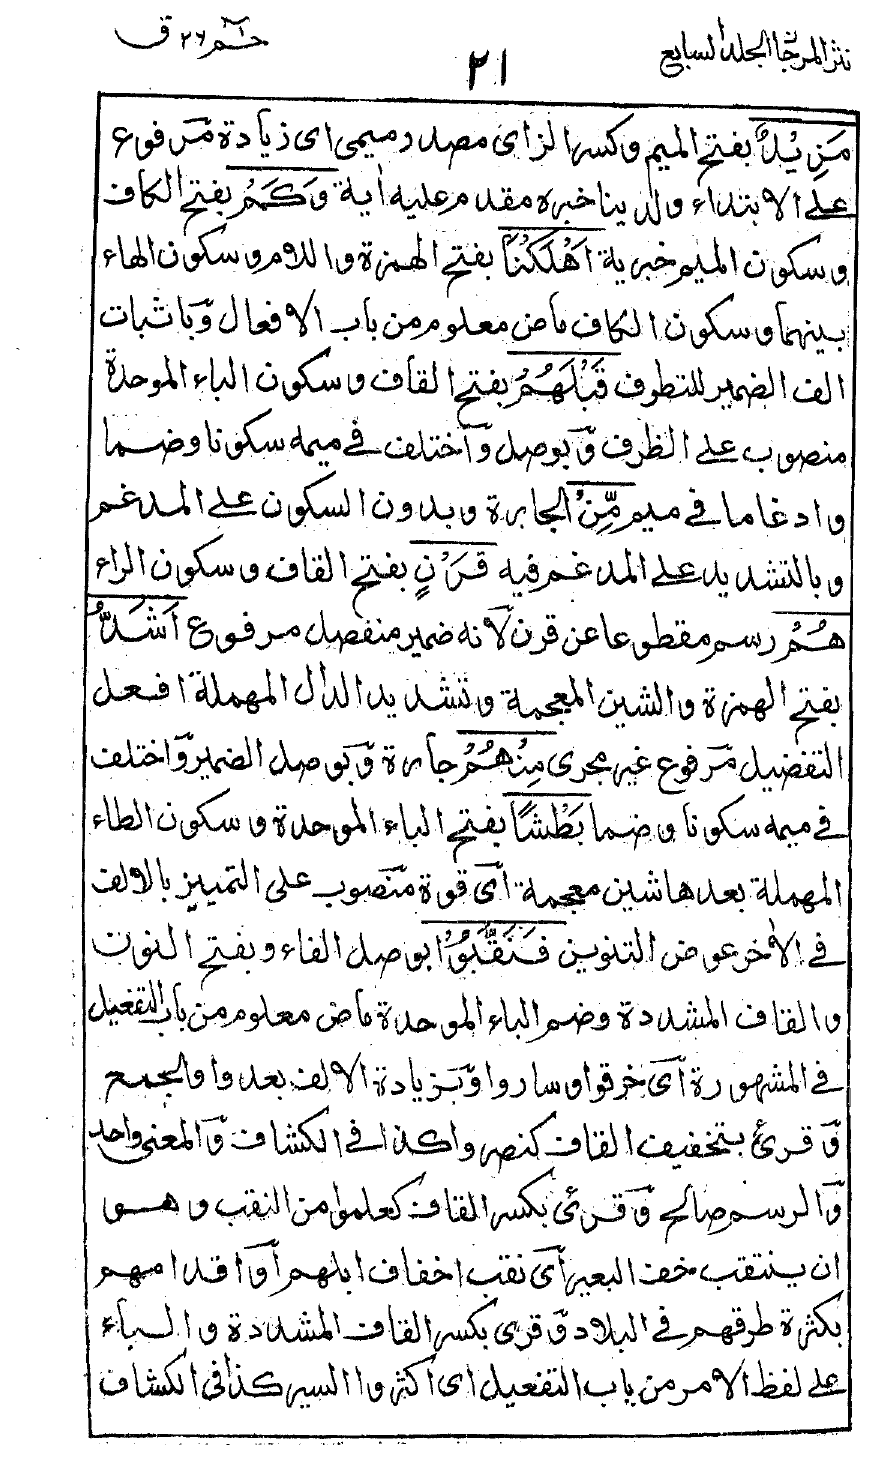 نثر المرجان المجلد السابع
٢١
حٰمٓ ٢٦ ق
مَزِيْدٌ بفتح الميم وكسر الزاى مصدر ميمى اى زيادة مرفوع
على الابتداء ولدينا خبره مقدم عليه اٰية وَكَمْ بفتح الكاف
وسكون الميم خبرية اَهْلَكْنَا بفتح الهمزة واللام وسكون الهاء
بينهما وسكون الكاف ماض معلوم من باب الافعال وباثبات
الف الضمير للتطرف قَبْلَهُمْ بفتح القاف وسكون الباء الموحدة
منصوب على الظرف وبوصل واختلف فى ميمه سكونا وضما
وادغاما فى ميم مِّنْ الجارة وبدون السكون على المدغم
وبالتشديد على المدغم فيه قَرْنٍ بفتح القاف وسكون الراء
هُمْ رسم مقطوعا عن قرن لانه ضمير منفصل مرفوع اَشَدُّ
بفتح الهمزة والشين المعجمة وتشديد الدال المهملة افعل
التفضيل مرفوع غير مجرى مِنْهُمْ جارة وبوصل الضمير واختلف
فى ميمه سكونا وضما بَطْشًا بفتح الباء الموحدة وسكون الطاء
المهملة بعدها شين معجمة اى قوة منصوب على التمييز بالالف
فى الاٰخر عوض التنوين فَنَقَّبُوْا بوصل الفاء وبفتح النون
والقاف المشددة وضم الباء الموحدة ماض معلوم من باب التفعيل
فى المشهورة اى خرقوا وساروا وبزيادة الالف بعد واو الجمع
وقرئ بتخفيف القاف كنصروا كذا فى الكشاف والمعنى واحد
والرسم صالح وقرئ بكسر القاف كعلموا من النقب وهو
ان ينتقب خف البعير اى نقب اخفاف ابلهم او اقدامهم
بكثرة طرقهم فى البلاد وقرئ بكسر القاف المشددة والباء
على لفظ الامر من باب التفعيل اى اكثروا السير كذا فى الكشاف